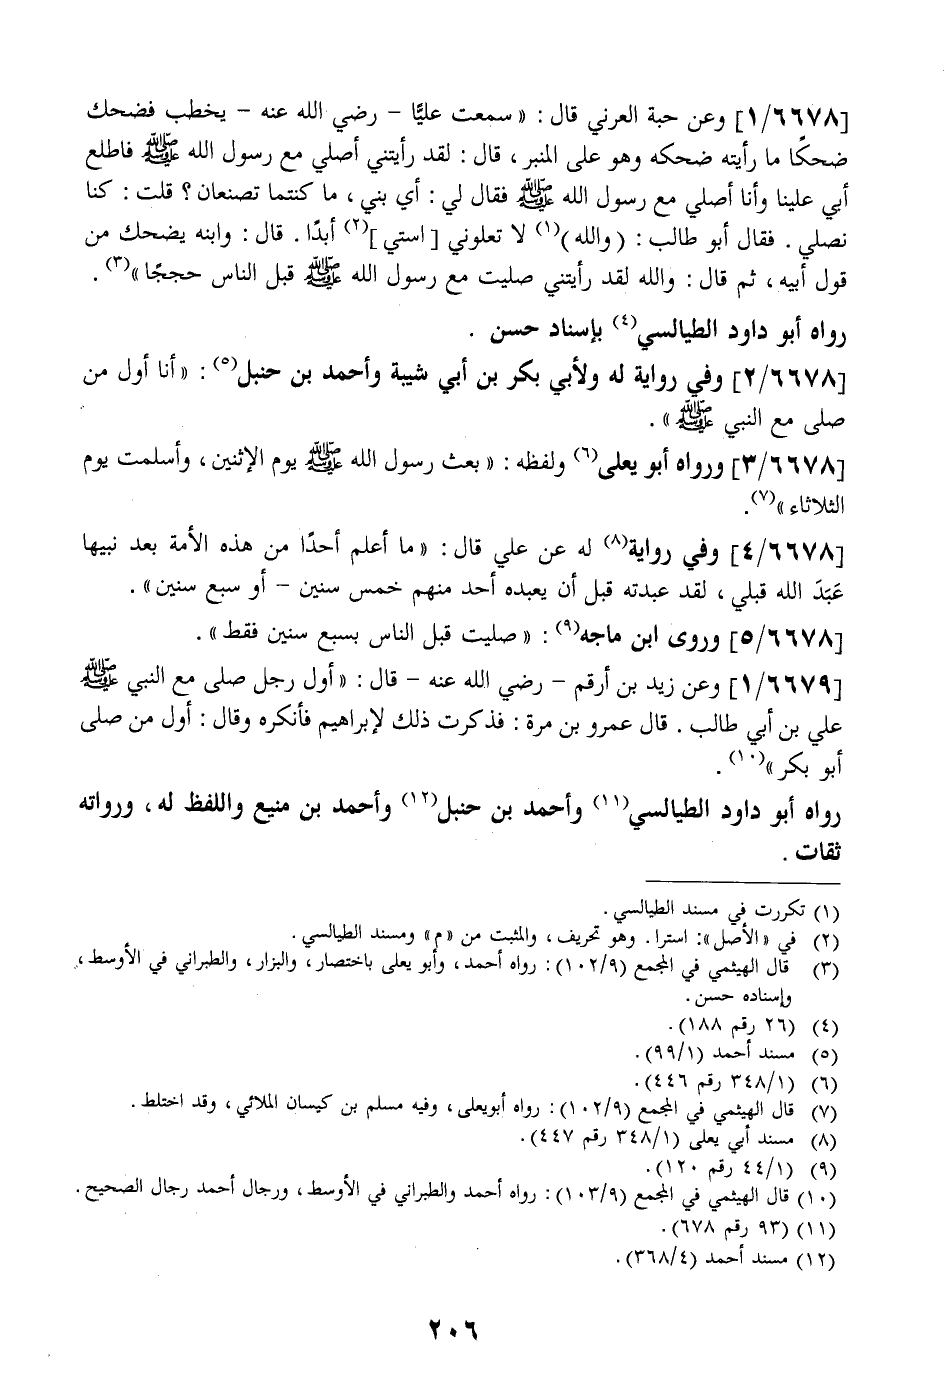 [١/٦٦٧٨] وعن حبة العرني قال : « سمعت عليًّا – رضي الله عنه – يخطب فضحك
ضحكًا ما رأيته ضحكه وهو على المنبر ، قال : لقد رأيتني أصلي مع رسول الله ﷺ فاطلع
أبي علينا وأنا أصلي مع رسول الله ﷺ فقال لي : أي بني ، ما كنتما تصنعان ؟ قلت : كنا
نصلي . فقال أبو طالب : (والله)(١) لا تعلوني [ استي ](٢) أبدًا . قال : وابنه يضحك من
قول أبيه ، ثم قال : والله لقد رأيتني صليت مع رسول الله ﷺ قبل الناس حججًا »(٣) .
رواه أبو داود الطيالسي(٤) بإسناد حسن .
[٢/٦٦٧٨] وفي رواية له ولأبي بكر بن أبي شيبة وأحمد بن حنبل(٥) : « أنا أول من
صلى مع النبي ﷺ » .
[٣/٦٦٧٨] ورواه أبو يعلى(٦) ولفظه : « بعث رسول الله ﷺ يوم الإثنين ، وأسلمت يوم
الثلاثاء »(٧).
[٤/٦٦٧٨] وفي رواية(٨) له عن علي قال : « ما أعلم أحدًا من هذه الأمة بعد نبيها
عَبَدَ الله قبلي ، لقد عبدته قبل أن يعبده أحد منهم خمس سنين – أو سبع سنين » .
[٥/٦٦٧٨] وروى ابن ماجه(٩) : « صليت قبل الناس بسبع سنين فقط » .
[١/٦٦٧٩] وعن زيد بن أرقم – رضي الله عنه – قال : « أول رجل صلى مع النبي ﷺ
علي بن أبي طالب . قال عمرو بن مرة : فذكرت ذلك لإبراهيم فأنكره وقال : أول من صلى
أبو بكر »(١٠) .
رواه أبو داود الطيالسي(١١) وأحمد بن حنبل(١٢) وأحمد بن منيع واللفظ له ، ورواته
ثقات .
(١) تكررت في مسند الطيالسي .
(٢) في «الأصل»: استرا . وهو تحريف ، والمثبت من «م» ومسند الطيالسي .
(٣) قال الهيثمي في المجمع (١٠٢/٩) : رواه أحمد ، وأبو يعلى باختصار ، والبزار ، والطبراني في الأوسط ،
وإسناده حسن .
(٤) (٢٦ رقم ١٨٨) .
(٥) مسند أحمد (٩٩/١) .
(٦) (٣٤٨/١ رقم ٤٤٦) .
(٧) قال الهيثمي في المجمع (١٠٢/٩) : رواه أبويعلى ، وفيه مسلم بن كيسان الملائي ، وقد اختلط .
(٨) مسند أبي يعلى (٣٤٨/١ رقم ٤٤٧) .
(٩) (٤٤/١ رقم ١٢٠) .
(١٠) قال الهيثمي في المجمع (١٠٣/٩) : رواه أحمد والطبراني في الأوسط ، ورجال أحمد رجال الصحيح .
(١١) (٩٣ رقم ٦٧٨) .
(١٢) مسند أحمد (٣٦٨/٤) .
٢٠٦